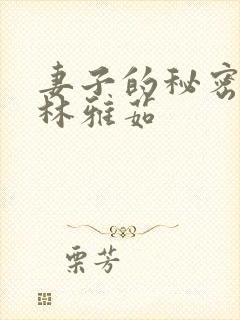 妻子的秘密
林雅茹
栗芳